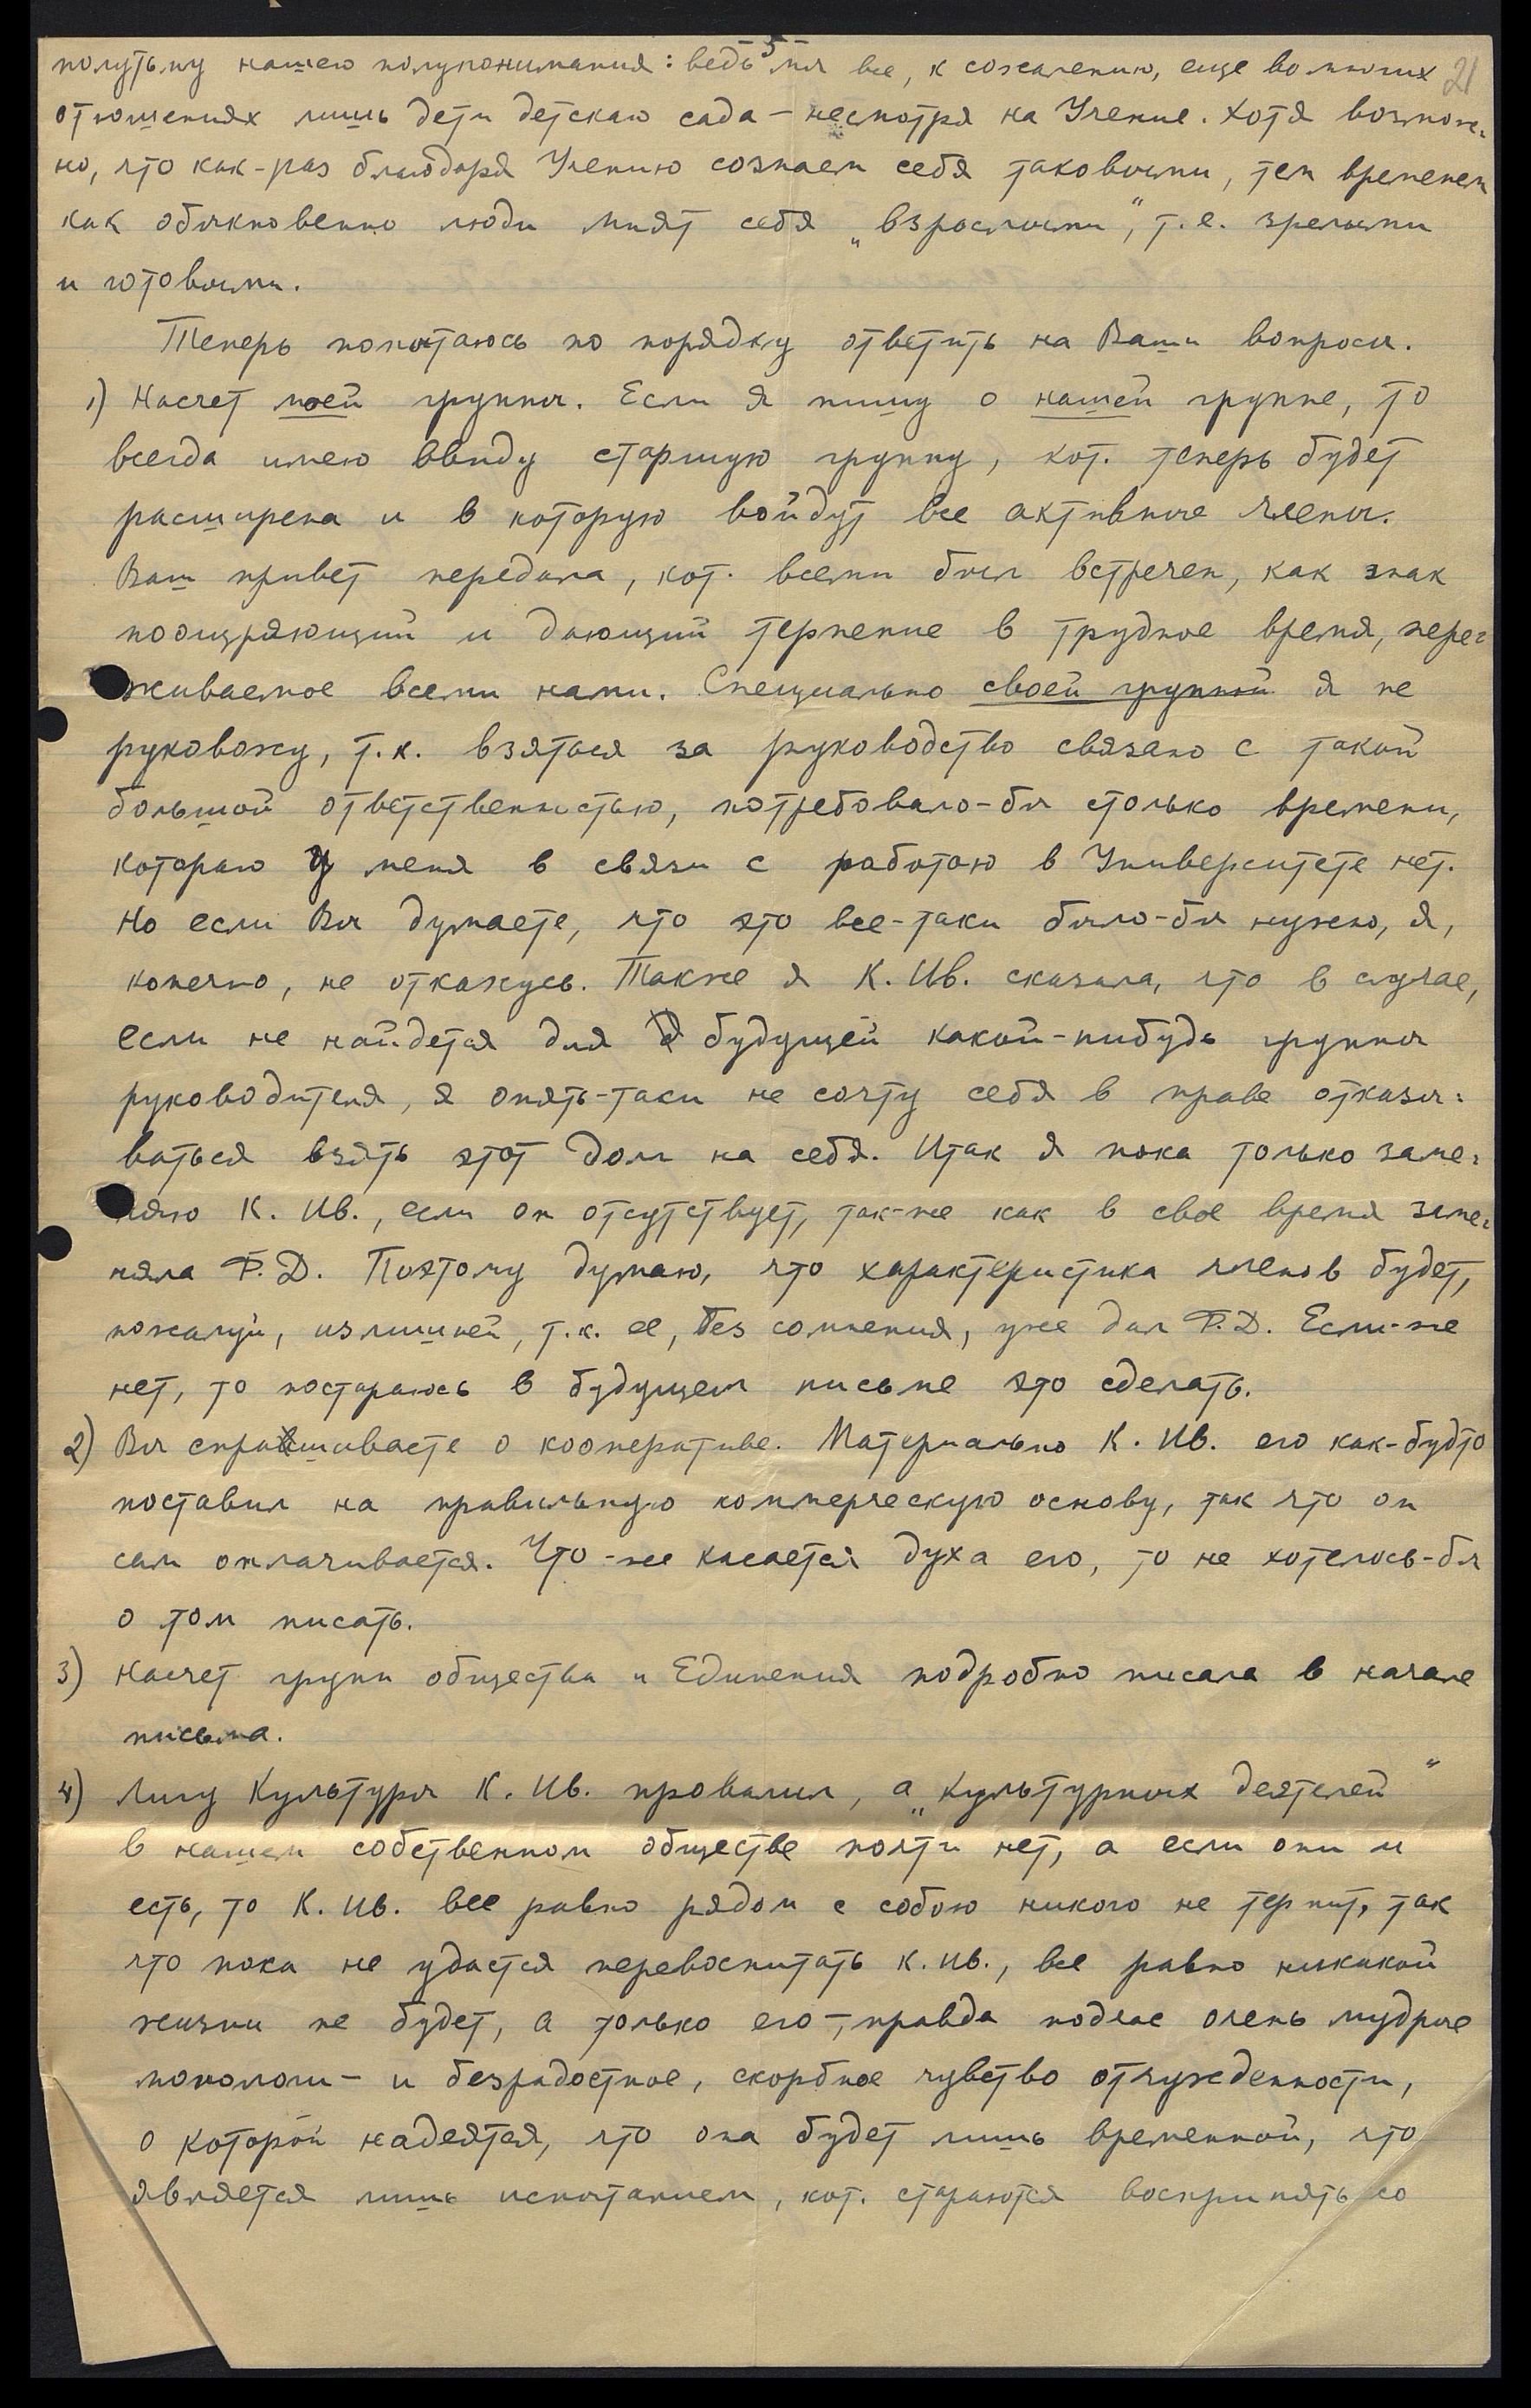 -5-
21
полутьму нашего полупонимания: ведь мы все, к сожалению, еще во многих
отношениях лишь дети детскаго сада – несмотря на Учение. Хотя возмож=
но, что как-раз благодаря Учению сознаем себя таковыми, тем временем
как обыкновенно люди мнят себя „взрослыми", т.е. зрелыми
и готовыми.
Теперь попытаюсь по порядку ответить на Ваши вопросы.
1) Насчет моей группы. Если я пишу о нашей группе, то
всегда имею ввиду старшую группу, кот. теперь будет
расширена и в которую войдут все активные члены.
Ваш привет передала, кот. всеми был встречен, как знак
поощряющий и дающий терпение в трудное время, пере=
живаемое всеми нами. Специально своей группой я не
руковожу, т.к. взяться за руководство связано с такой
большой ответственностью, потребовало-бы столько времени,
котораго у меня в связи с работою в Университете нет.
Но если Вы думаете, что это все-таки было-бы нужно, я,
конечно, не откажусь. Также я К. Ив. сказала, что в случае,
если не найдется для будущей какой-нибудь группы
руководителя, я опять-таки не сочту себя в праве отказы=
ваться взять этот долг на себя. Итак я пока только заме=
няю К. Ив., если он отсутствует, так-же как в свое время заме=
няла Ф.Д. Поэтому думаю, что характеристика членов будет,
пожалуй, излишней, т.к. ее, без сомнения, уже дал Ф.Д. Если-же
нет, то постараюсь в будущем письме это сделать.
2) Вы спрашиваете о кооперативе. Материально К. Ив. его как-будто
поставил на правильную коммерческую основу, так что он
сам оплачивается. Что-же касается духа его, то не хотелось-бы
о том писать.
3) Насчет групп общества и Единения подробно писала в начале
письма.
4) Лигу Культуры К. Ив. провалил, а „культурных деятелей"
в нашем собственном обществе почти нет, а если они и
есть, то К. Ив. все равно рядом с собою никого не терпит, так
что пока не удастся перевоспитать К. Ив., все равно никакой
жизни не будет, а только его –, правда подчас очень мудрые
монологи – и безрадостное, скорбное чувство отчужденности,
о которой надеятся, что она будет лишь временной, что
является лишь испытанием, кот. стараются воспринять со